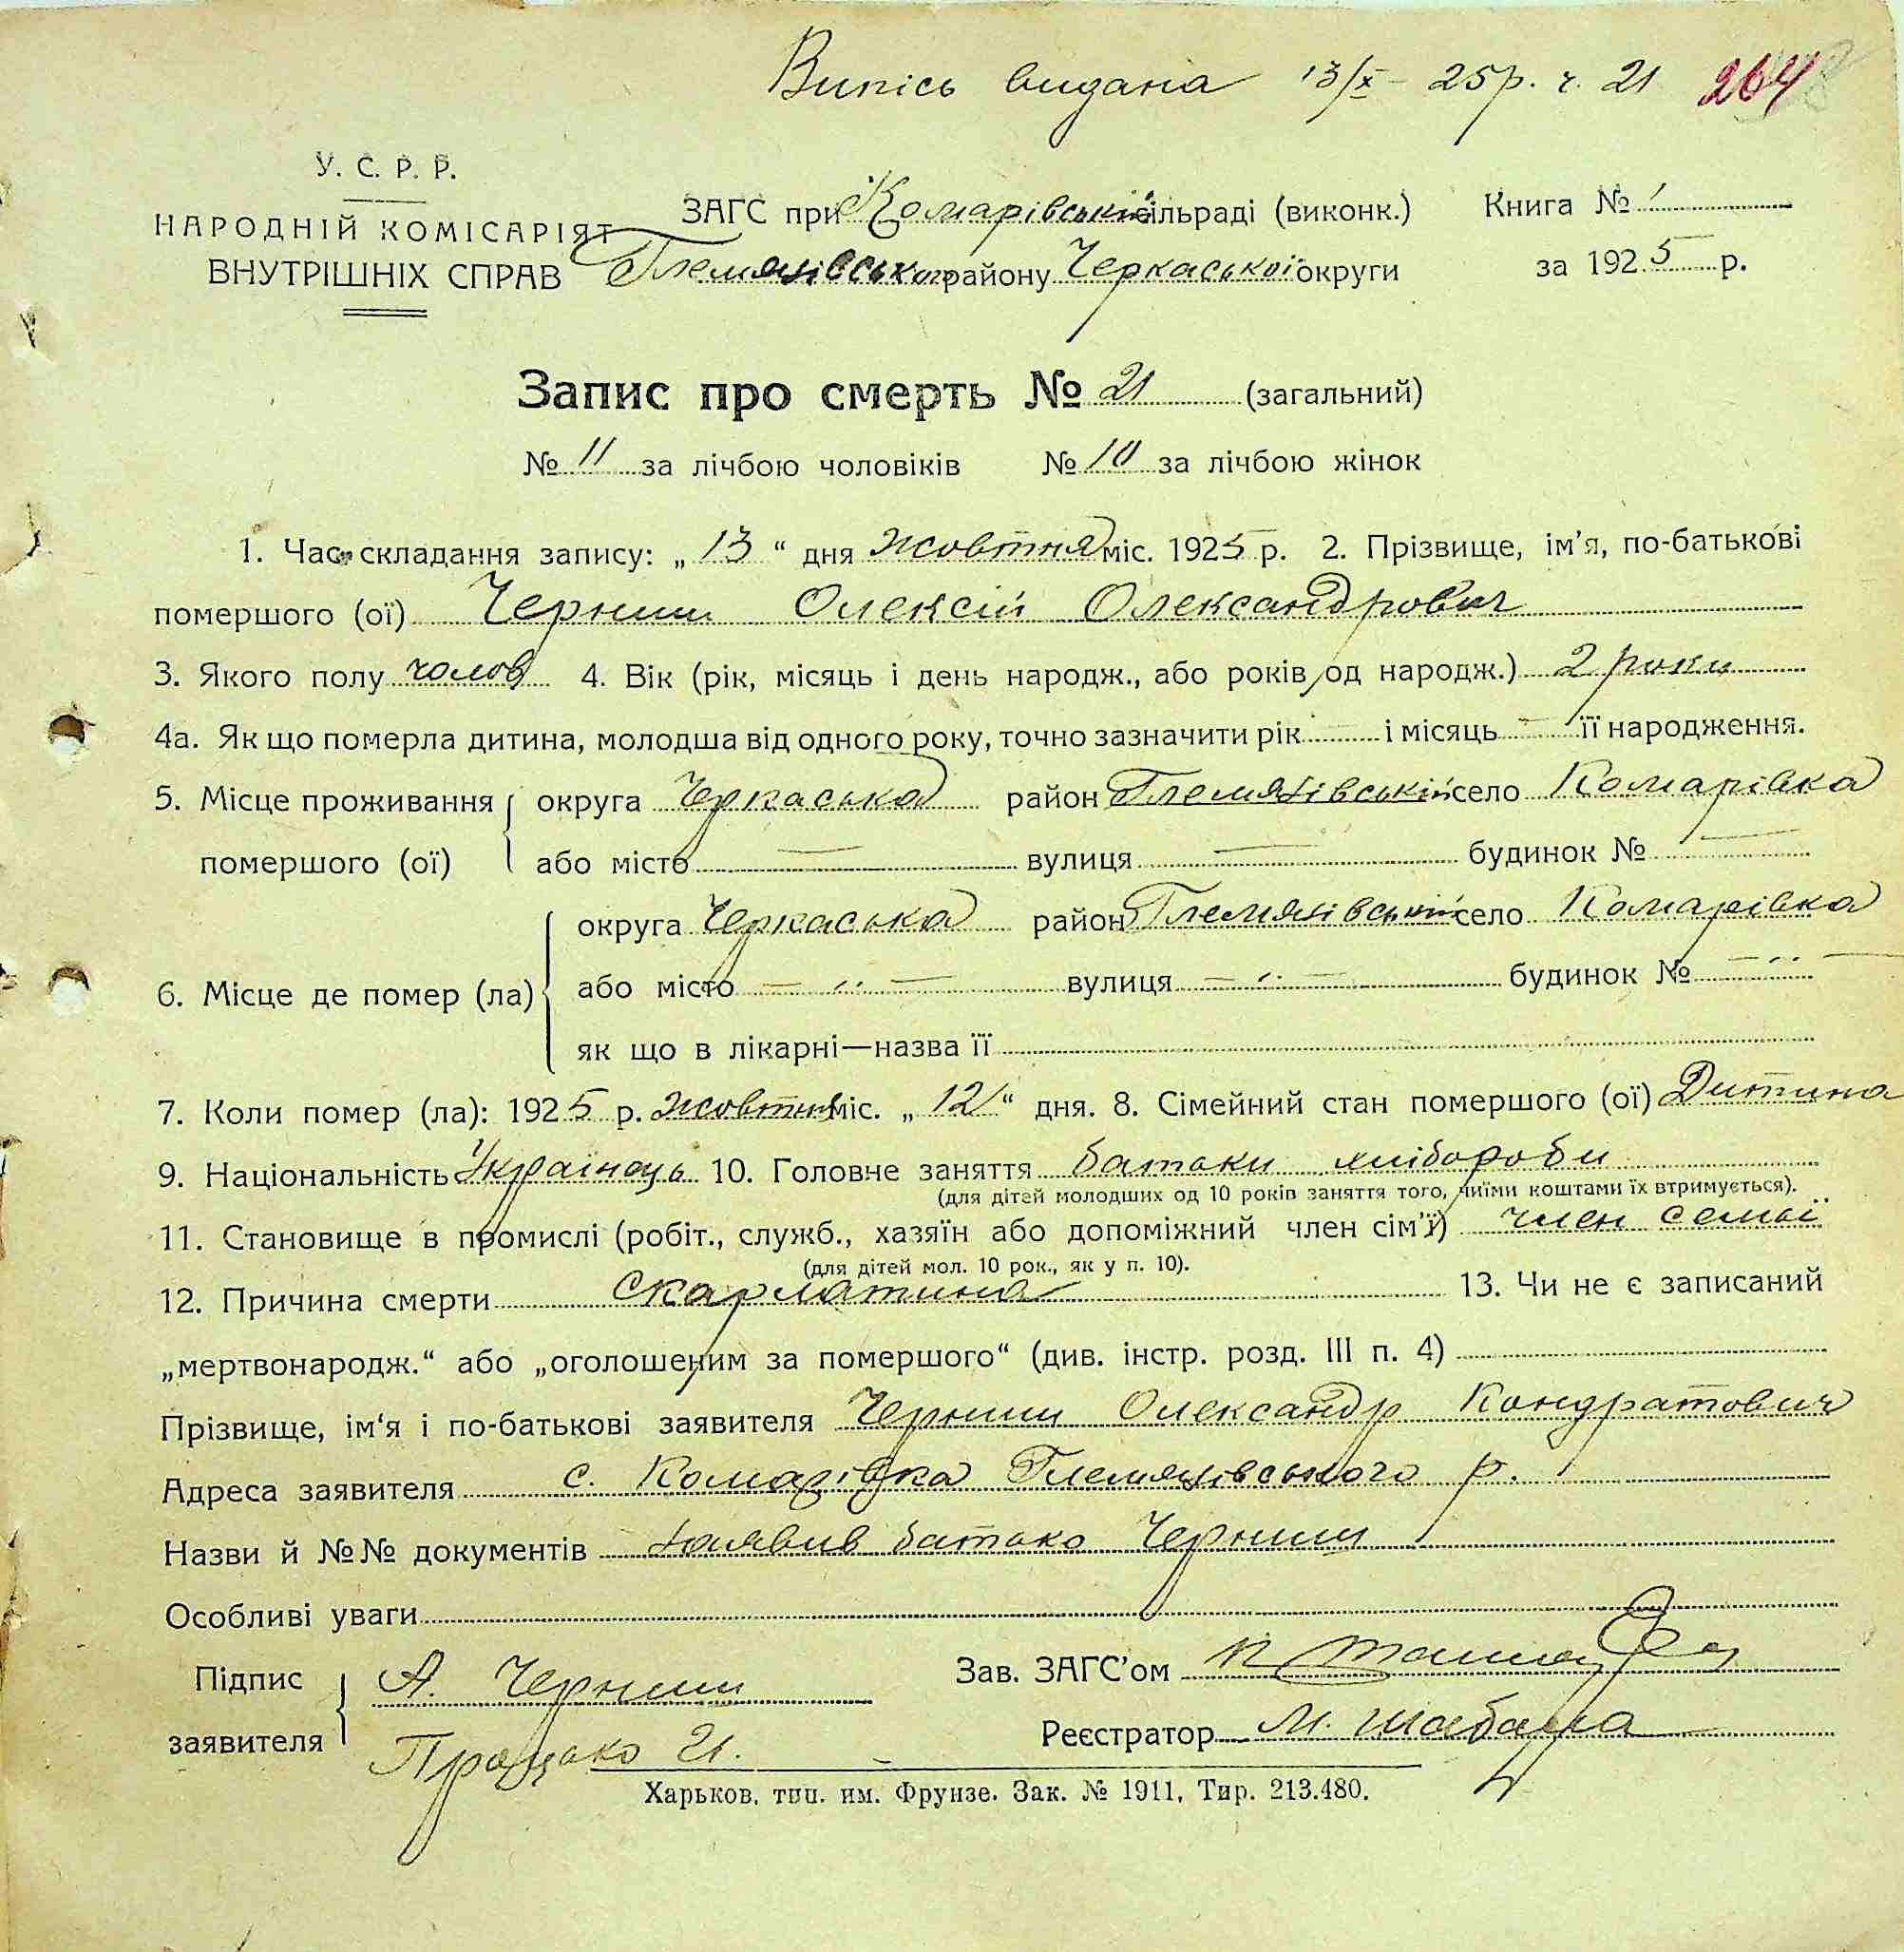 Випісь видана 13/X - 25 р. ч. 21 264
У. С. Р. Р.
НАРОДНІЙ КОМІСАРІЯТ
ВНУТРІШНІХ СПРАВ
ЗАГС при Комарівській сільраді (виконк.)
Гельмязівського району Черкаської округи
Книга № 1
за 1925 р.
Запис про смерть № 21 (загальний)
№ 11 за лічбою чоловіків № 10 за лічбою жінок
1. Час складання запису: „ 13 “ дня жовтня міс. 1925 р. 2. Прізвище, ім’я, по-батькові
помершого (ої) Черниш Олексій Олександрович
3. Якого полу чолов 4. Вік (рік, місяць і день народж., або років од народж.) 2 роки
4а. Як що померла дитина, молодша від одного року, точно зазначити рік — і місяць — її народження.
5. Місце проживання округа Черкаська район Глемязівський село Комарівка
помершого (ої) або місто — вулиця — будинок № —
6. Місце де помер (ла) округа Черкаська район Глемязівський село Комарівка
або місто — „ — вулиця — „ — будинок № — „ —
як що в лікарні—назва її
7. Коли помер (ла): 1925 р. жовтня міс. „ 12 “ дня. 8. Сімейний стан помершого (ої) Дитина
9. Національність Українець 10. Головне заняття батьки хлібороби
(для дітей молодших од 10 років заняття того, чиїми коштами їх втримується).
11. Становище в промислі (робіт., служб., хазяїн або допоміжний член сім’ї) член семьї
(для дітей мол. 10 рок., як у п. 10).
12. Причина смерти Скарлатина 13. Чи не є записаний
„мертвонародж.“ або „оголошеним за помершого“ (див. інстр. розд. III п. 4)
Прізвище, ім‘я і по-батькові заявителя Черниш Олександр Кондратович
Адреса заявителя с. Комарівка Глемязівського р.
Назви й №№ документів Заявив батько Черниш
Особливі уваги
Підпис заявителя А. Черниш
Зав. ЗАГС’ом
Реєстратор М. Шабарра
21.
Харьков, тип. им. Фрунзе. Зак. № 1911, Тир. 213.480.